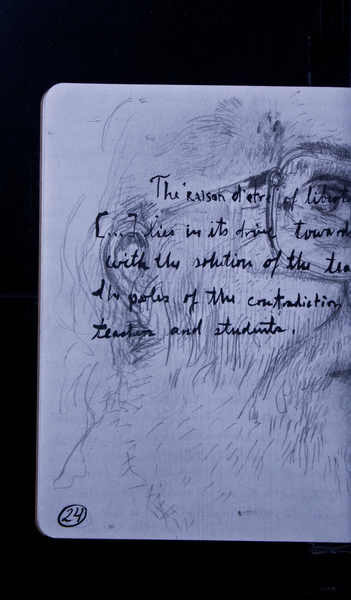 The raison d'etre of
[...] lies in its drive toward
with the solution of the
the poles of the contradiction
teachers and students.
24